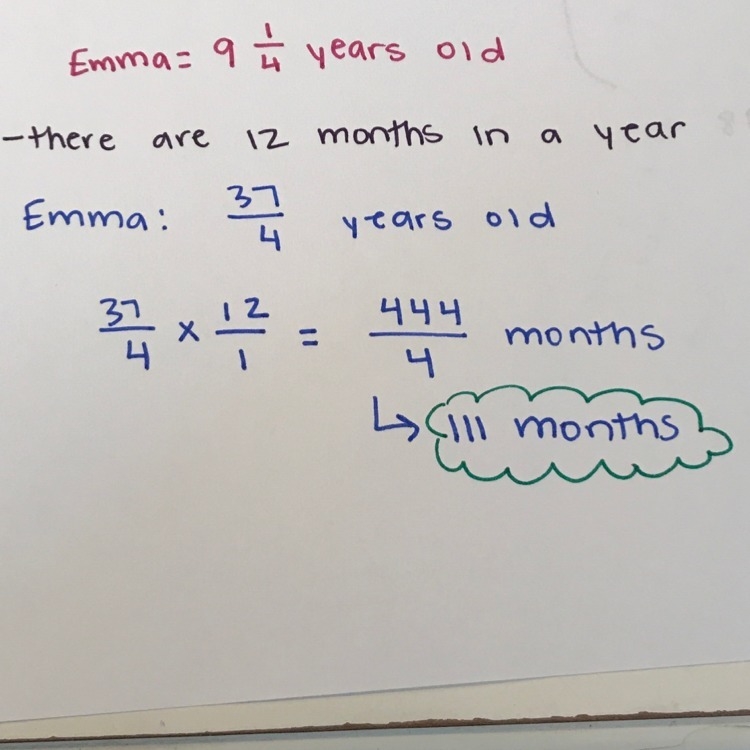 Emma = 9 1/4 years old
-there are 12 months in a year
Emma: 37/4 years old
37/4 x 12/1 = 444/4 months
↳ 111 months